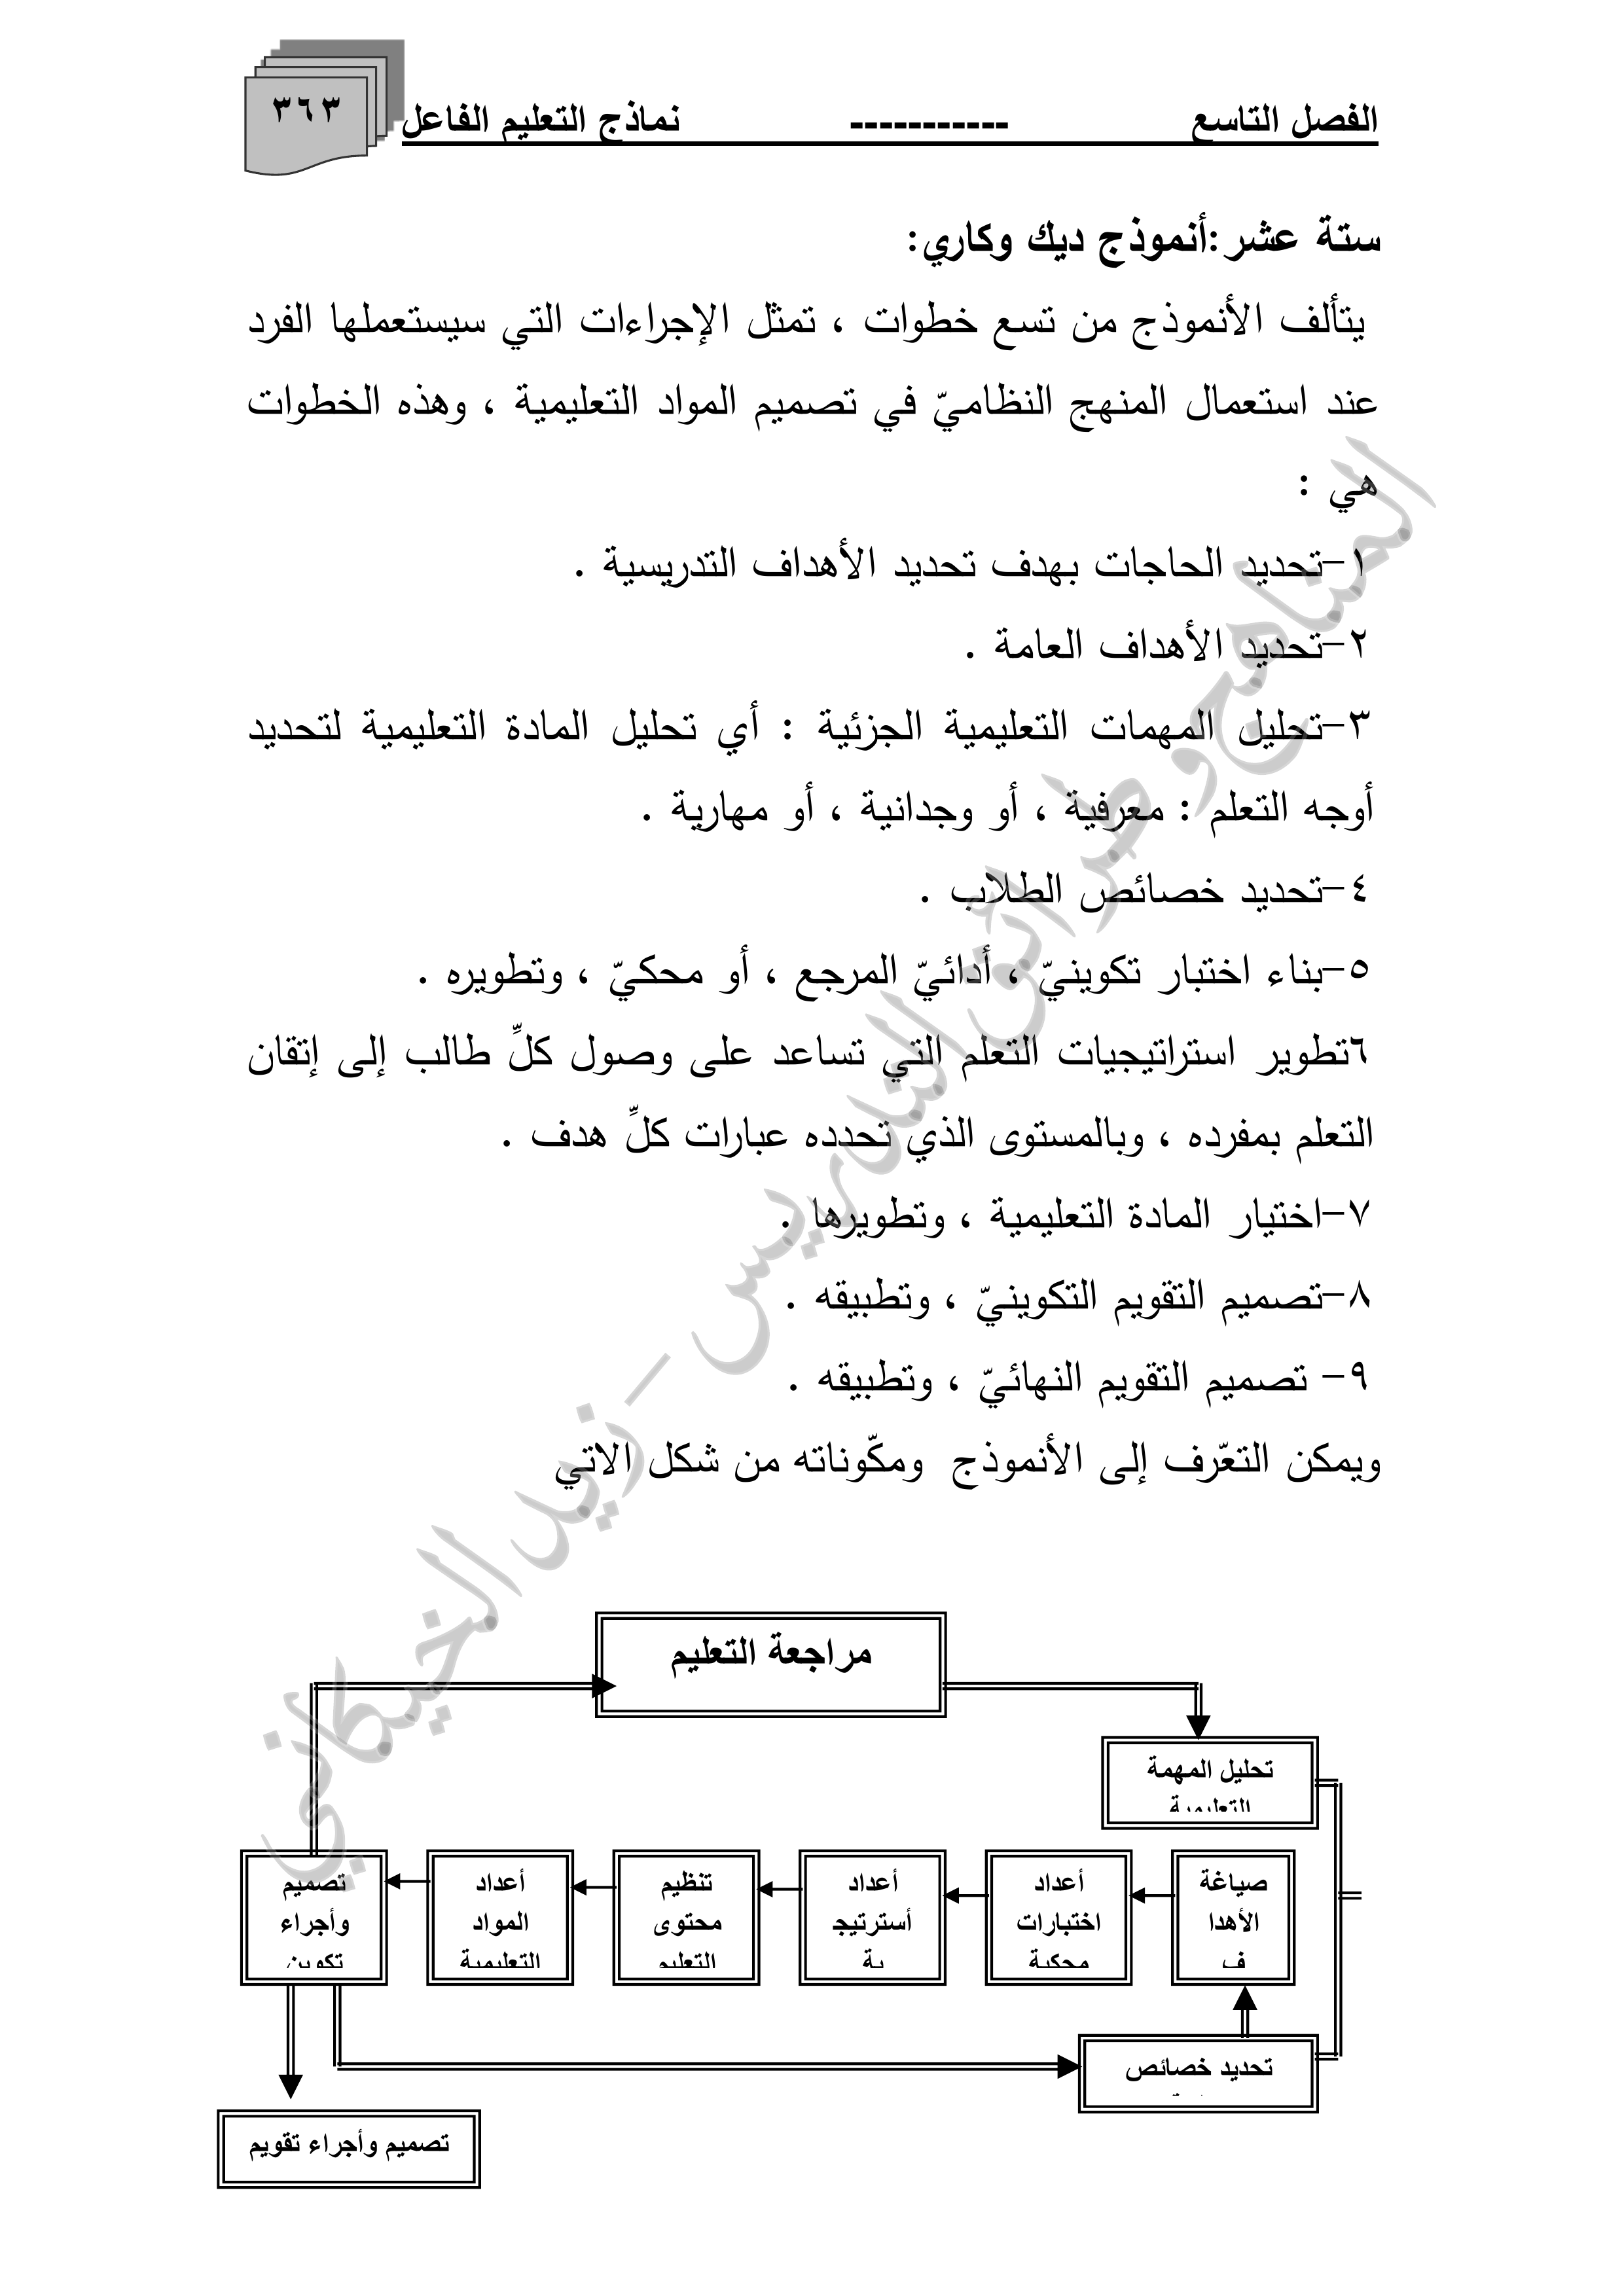 الفصل التاسع ----------- نماذج التعليم الفاعل
٣٦٣
ستة عشر:أنموذج ديك وكاري:
يتألف الأنموذج من تسع خطوات ، تمثل الإجراءات التي سيستعملها الفرد
عند استعمال المنهج النظاميّ في تصميم المواد التعليمية ، وهذه الخطوات
هي :
١-تحديد الحاجات بهدف تحديد الأهداف التدريسية .
٢-تحديد الأهداف العامة .
٣-تحليل المهمات التعليمية الجزئية : أي تحليل المادة التعليمية لتحديد
أوجه التعلم : معرفية ، أو وجدانية ، أو مهارية .
٤-تحديد خصائص الطلاب .
٥-بناء اختبار تكوينيّ ، أدائيّ المرجع ، أو محكيّ ، وتطويره .
٦تطوير استراتيجيات التعلم التي تساعد على وصول كلِّ طالب إلى إتقان
التعلم بمفرده ، وبالمستوى الذي تحدده عبارات كلِّ هدف .
٧-اختيار المادة التعليمية ، وتطويرها .
٨-تصميم التقويم التكوينيّ ، وتطبيقه .
٩- تصميم التقويم النهائيّ ، وتطبيقه .
ويمكن التعّرف إلى الأنموذج ومكّوناته من شكل الاتي
المناهج وطرائق التدريس – زيد الخيكاني
مراجعة التعليم
تحليل المهمة
التعليمية
صياغة
الأهدا
ف
أعداد
اختبارات
محكية
أعداد
أسترتيج
ية
تنظيم
محتوى
التعليم
أعداد
المواد
التعليمية
تصميم
وأجراء
تكوين
تحديد خصائص
تصميم وأجراء تقويم